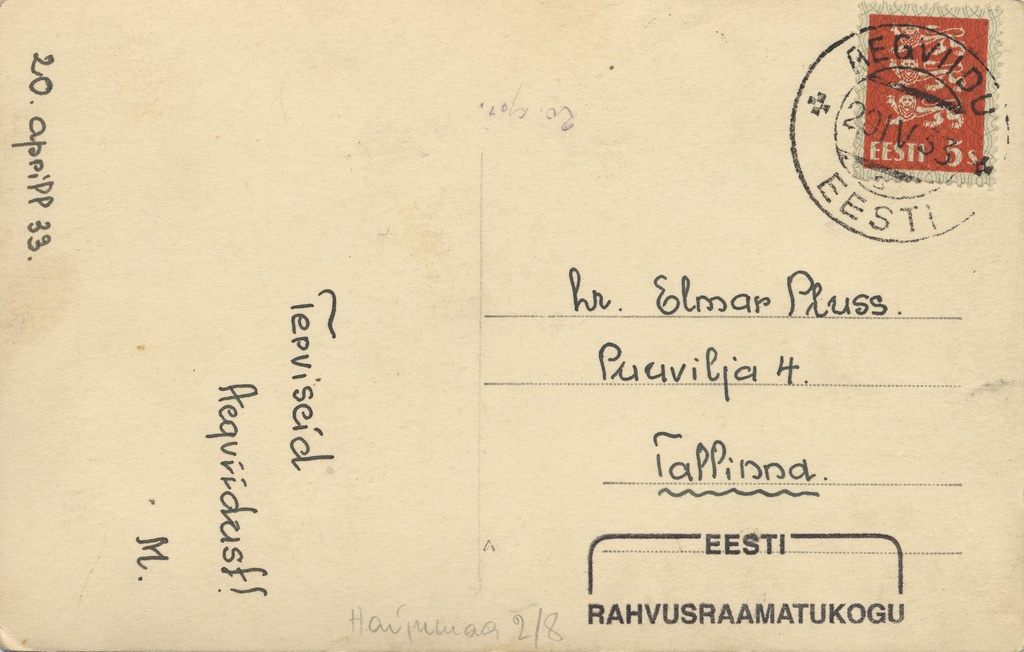 20. aprill 33.
Terviseid
Aegviidust!
M.
AEGVIIDU
20 IV 33
EESTI
EESTI 5 s
hr. Elmar Pluss.
Puuvilja 4.
Tallinna.
EESTI
RAHVUSRAAMATUKOGU
Harjumaa 2/8